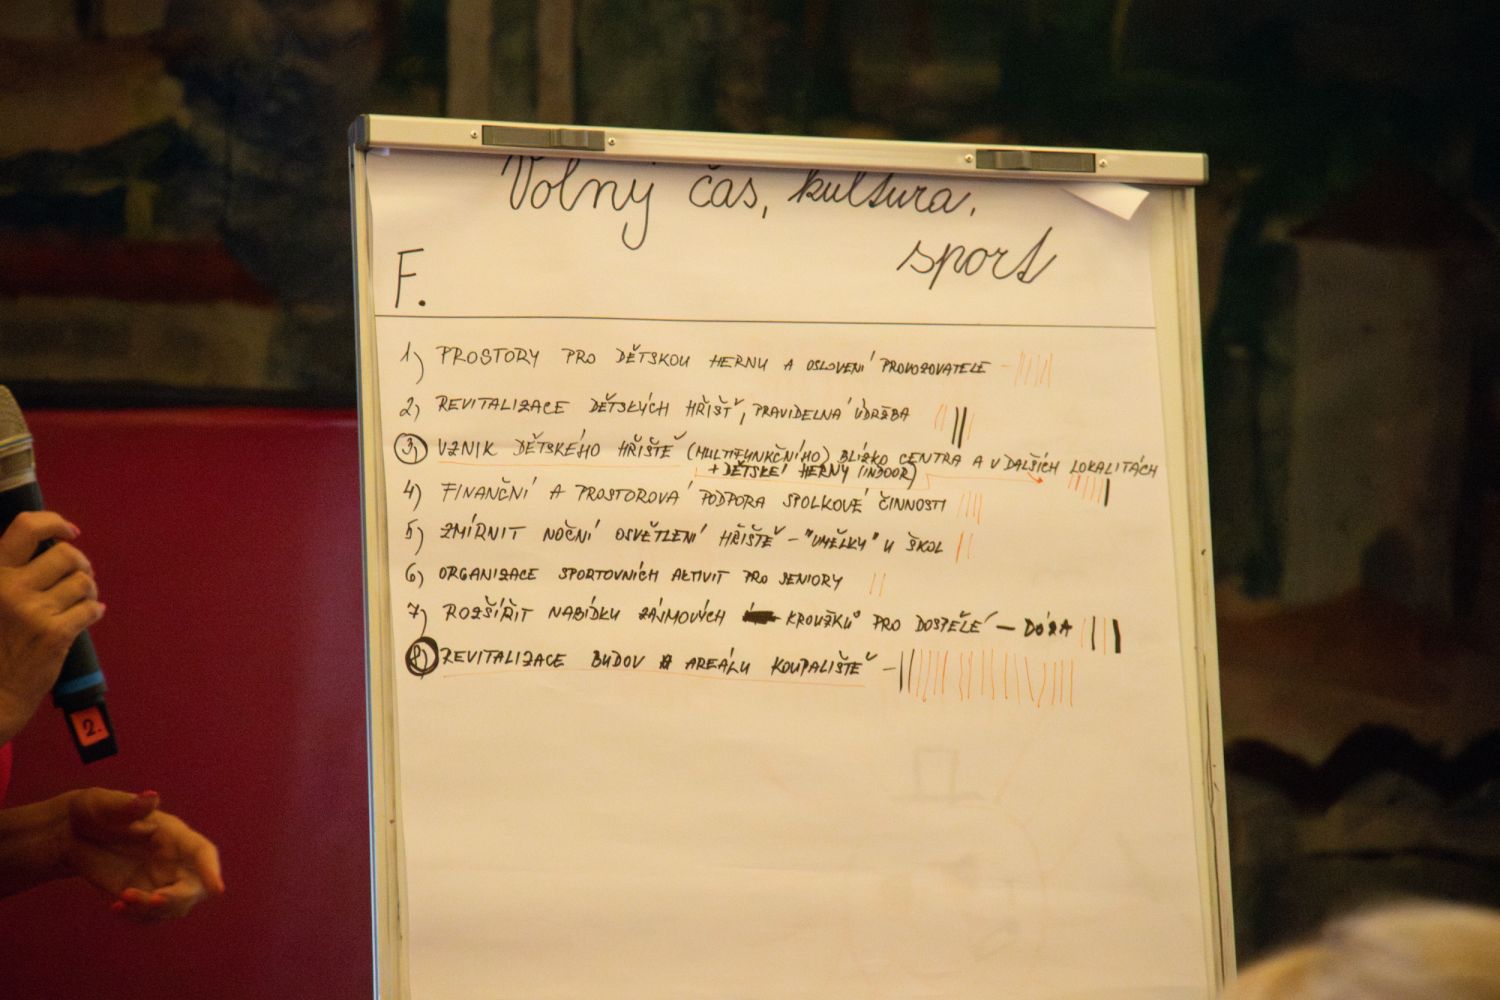 Volný čas, kultura,
sport
F.
1) PROSTORY PRO DĚTSKOU HERNU A OSLOVENÍ PROVOZOVATELE -
2) REVITALIZACE DĚTSKÝCH HŘIŠŤ, PRAVIDELNÁ ÚDRŽBA
3) VZNIK DĚTSKÉHO HŘIŠTĚ (MULTIFUNKČNÍHO) BLÍZKO CENTRA A V DALŠÍCH LOKALITÁCH
+ DĚTSKÉ HERNY (INDOOR)
4) FINANČNÍ A PROSTOROVÁ PODPORA SPOLKOVÉ ČINNOSTI
5) ZMÍRNIT NOČNÍ OSVĚTLENÍ HŘIŠTĚ - "UMĚLKY" U ŠKOL
6) ORGANIZACE SPORTOVNÍCH AKTIVIT PRO SENIORY
7) ROZŠÍŘIT NABÍDKU ZÁJMOVÝCH KROUŽKŮ PRO DOSPĚLÉ -
8) REVITALIZACE BUDOV A AREÁLU KOUPALIŠTĚ -
2.